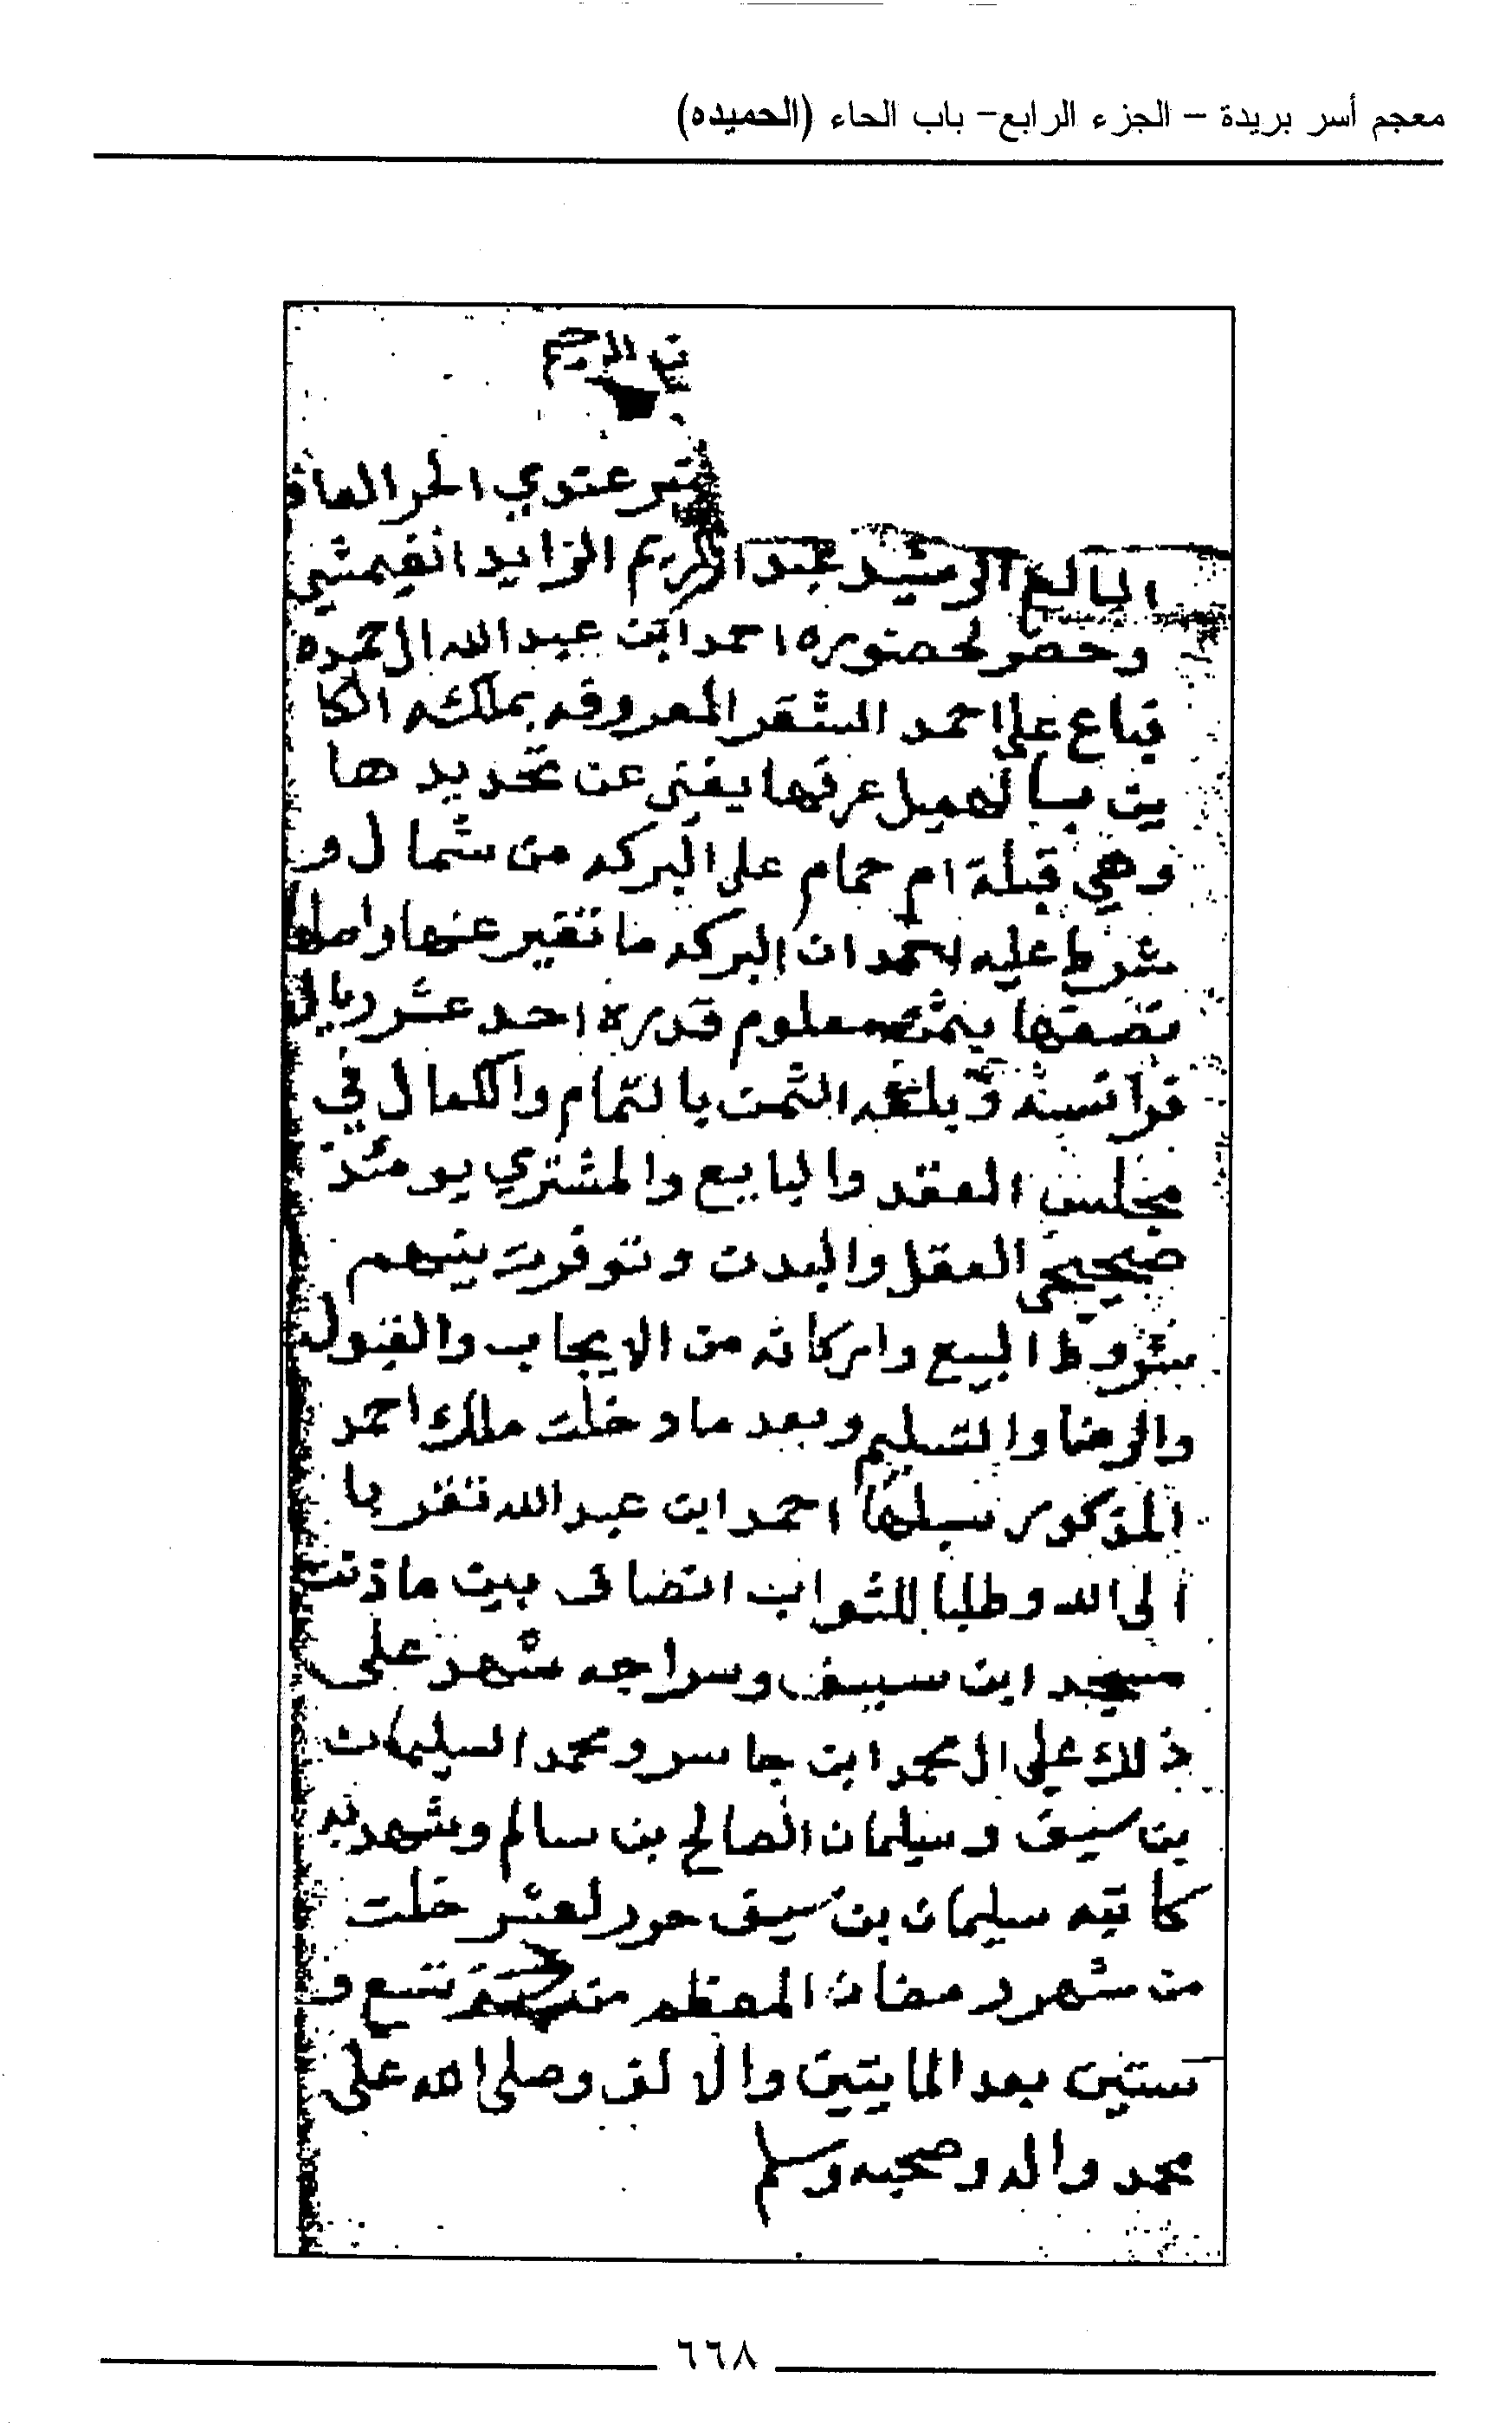 معجم أسر بريدة – الجزء الرابع – باب الحاء (الحميده)
الرحيم
عتوي الحر العاقـ
البالغ الرشيد عبد الكريم الزايد النغيمشي
وحضر لحضوره احمد ابن عبدالله الحميده
فباع على احمد الشقر المعروفه بملكه الكا
ين بالهميل عرفها يغني عن تحديدها
وهي قبلة ام حمام على البركه من شمال و
شرط عليه احمد ان البركه ما تغير عنها واصلها
نصفها بثمن معلوم قدره احد عشر ريال
فرانسه وبلغه الثمن بالتمام والكمال في
مجلس العقد والبايع والمشتري يومئذ
صحيحي العقل والبدن وتوفرت بينهم
شروط البيع واركانه من الايجاب والقبول
والرضا والتسليم وبعد ما دخلت ملك احمد
المذكور سبلها احمد ابن عبدالله تقربا
الى الله وطلبا للثواب انصاف بين ماذنت
مسجد ابن سيف وسراجه شهد على
ذلك علي ال محمد ابن جاسر ومحمد السليمان
بن سيف وسليمان الصالح بن سالم وشهد به
كاتبه سليمان بن سيف حرر لعشر خلت
من شهر رمضان المعظم من تسع و
ستين بعد المايتين والالف وصلى الله على
محمد واله وصحبه وسلم
٦٦٨